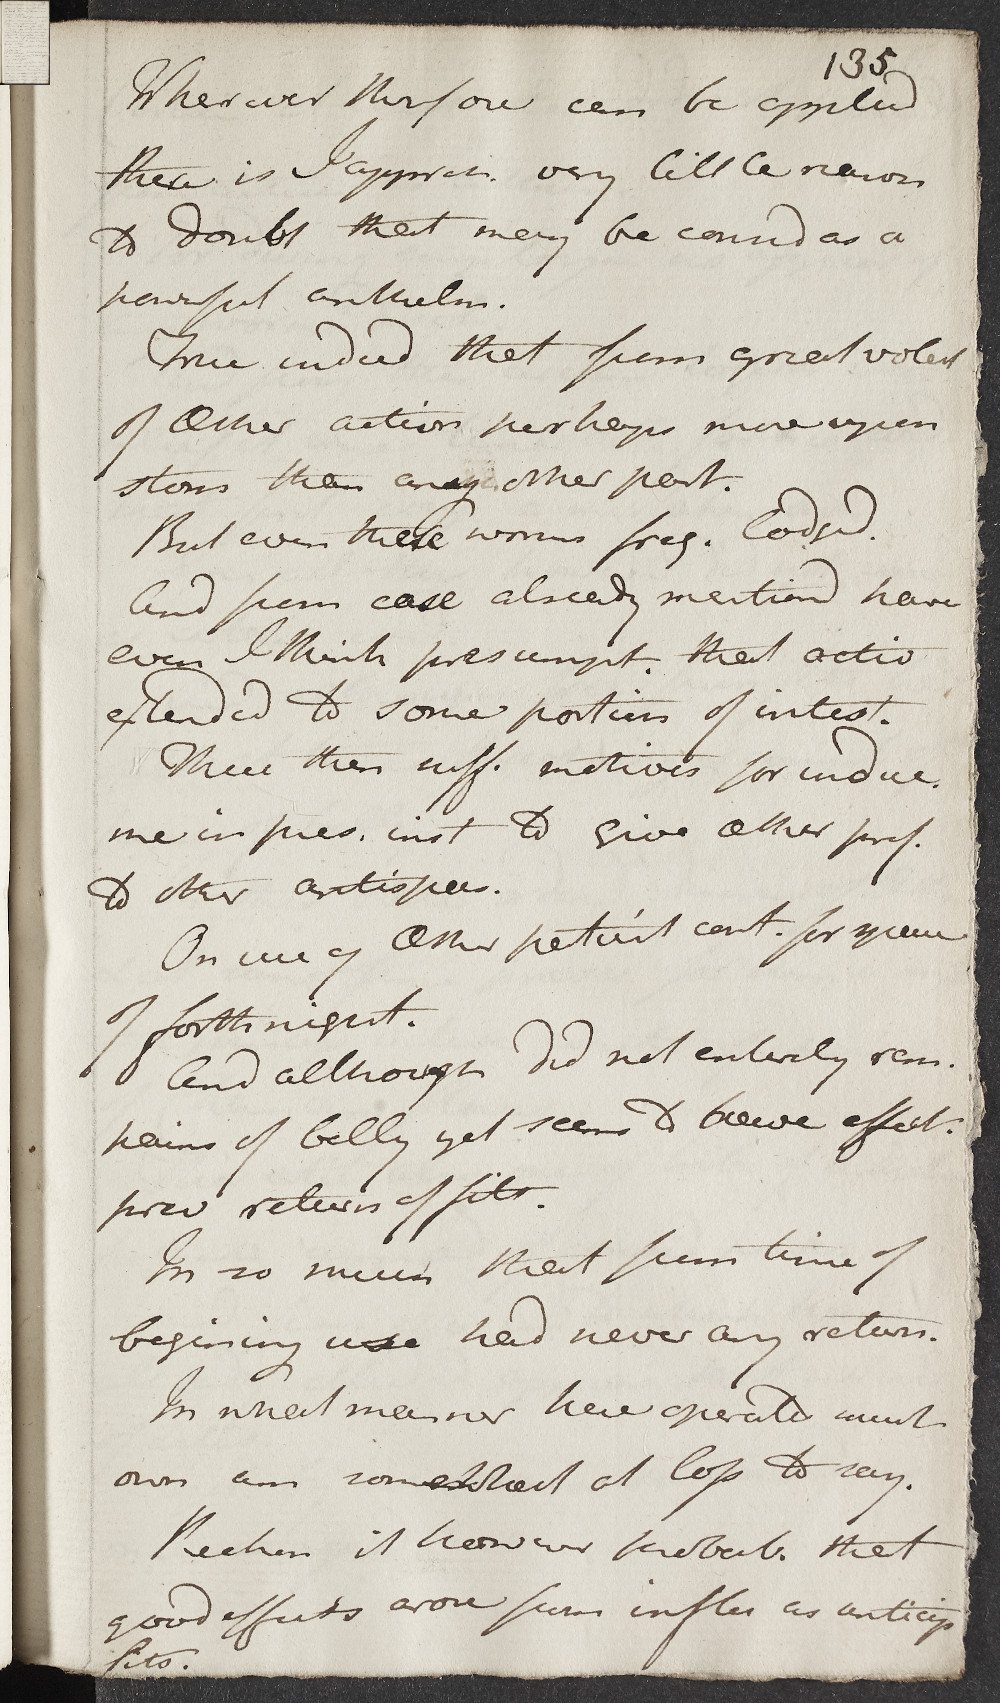 135
Wherever therfore can be applied
there is I appreh. very little reason
to doubt that may be consid as a
powerful anthelm.
True indeed that from great volat
of Æther action perhaps more upon
stom than any other part.
But even there worms freq. lodged.
And from case already mentiond have
even I think presumpt. that actio
extended to some portion of intest.
These then suff. motives for induc.
me in pres. inst to give Æther pref.
to other antispas.
On use of Æther patient cont. for space
of forthnight.
And although did not entirely rem.
pains of belly yet seems to have effect.
prev return of fits.
In so much that from time of
begining use had never any return.
In what manner here operated must
own am somewhat at loss to say.
Reckon it however probab. that
good effects arose from influ as anticip
fits.